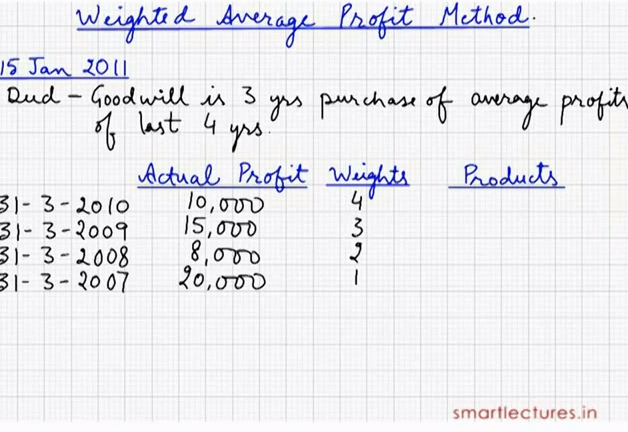 Weighted Average Profit Method.
15 Jan 2011
Dud - Goodwill is 3 yrs purchase of average profits
of last 4 yrs.
Actual Profit Weights Products
31-3-2010 10,000 4
31-3-2009 15,000 3
31-3-2008 8,000 2
31-3-2007 20,000 1
smartlectures.in